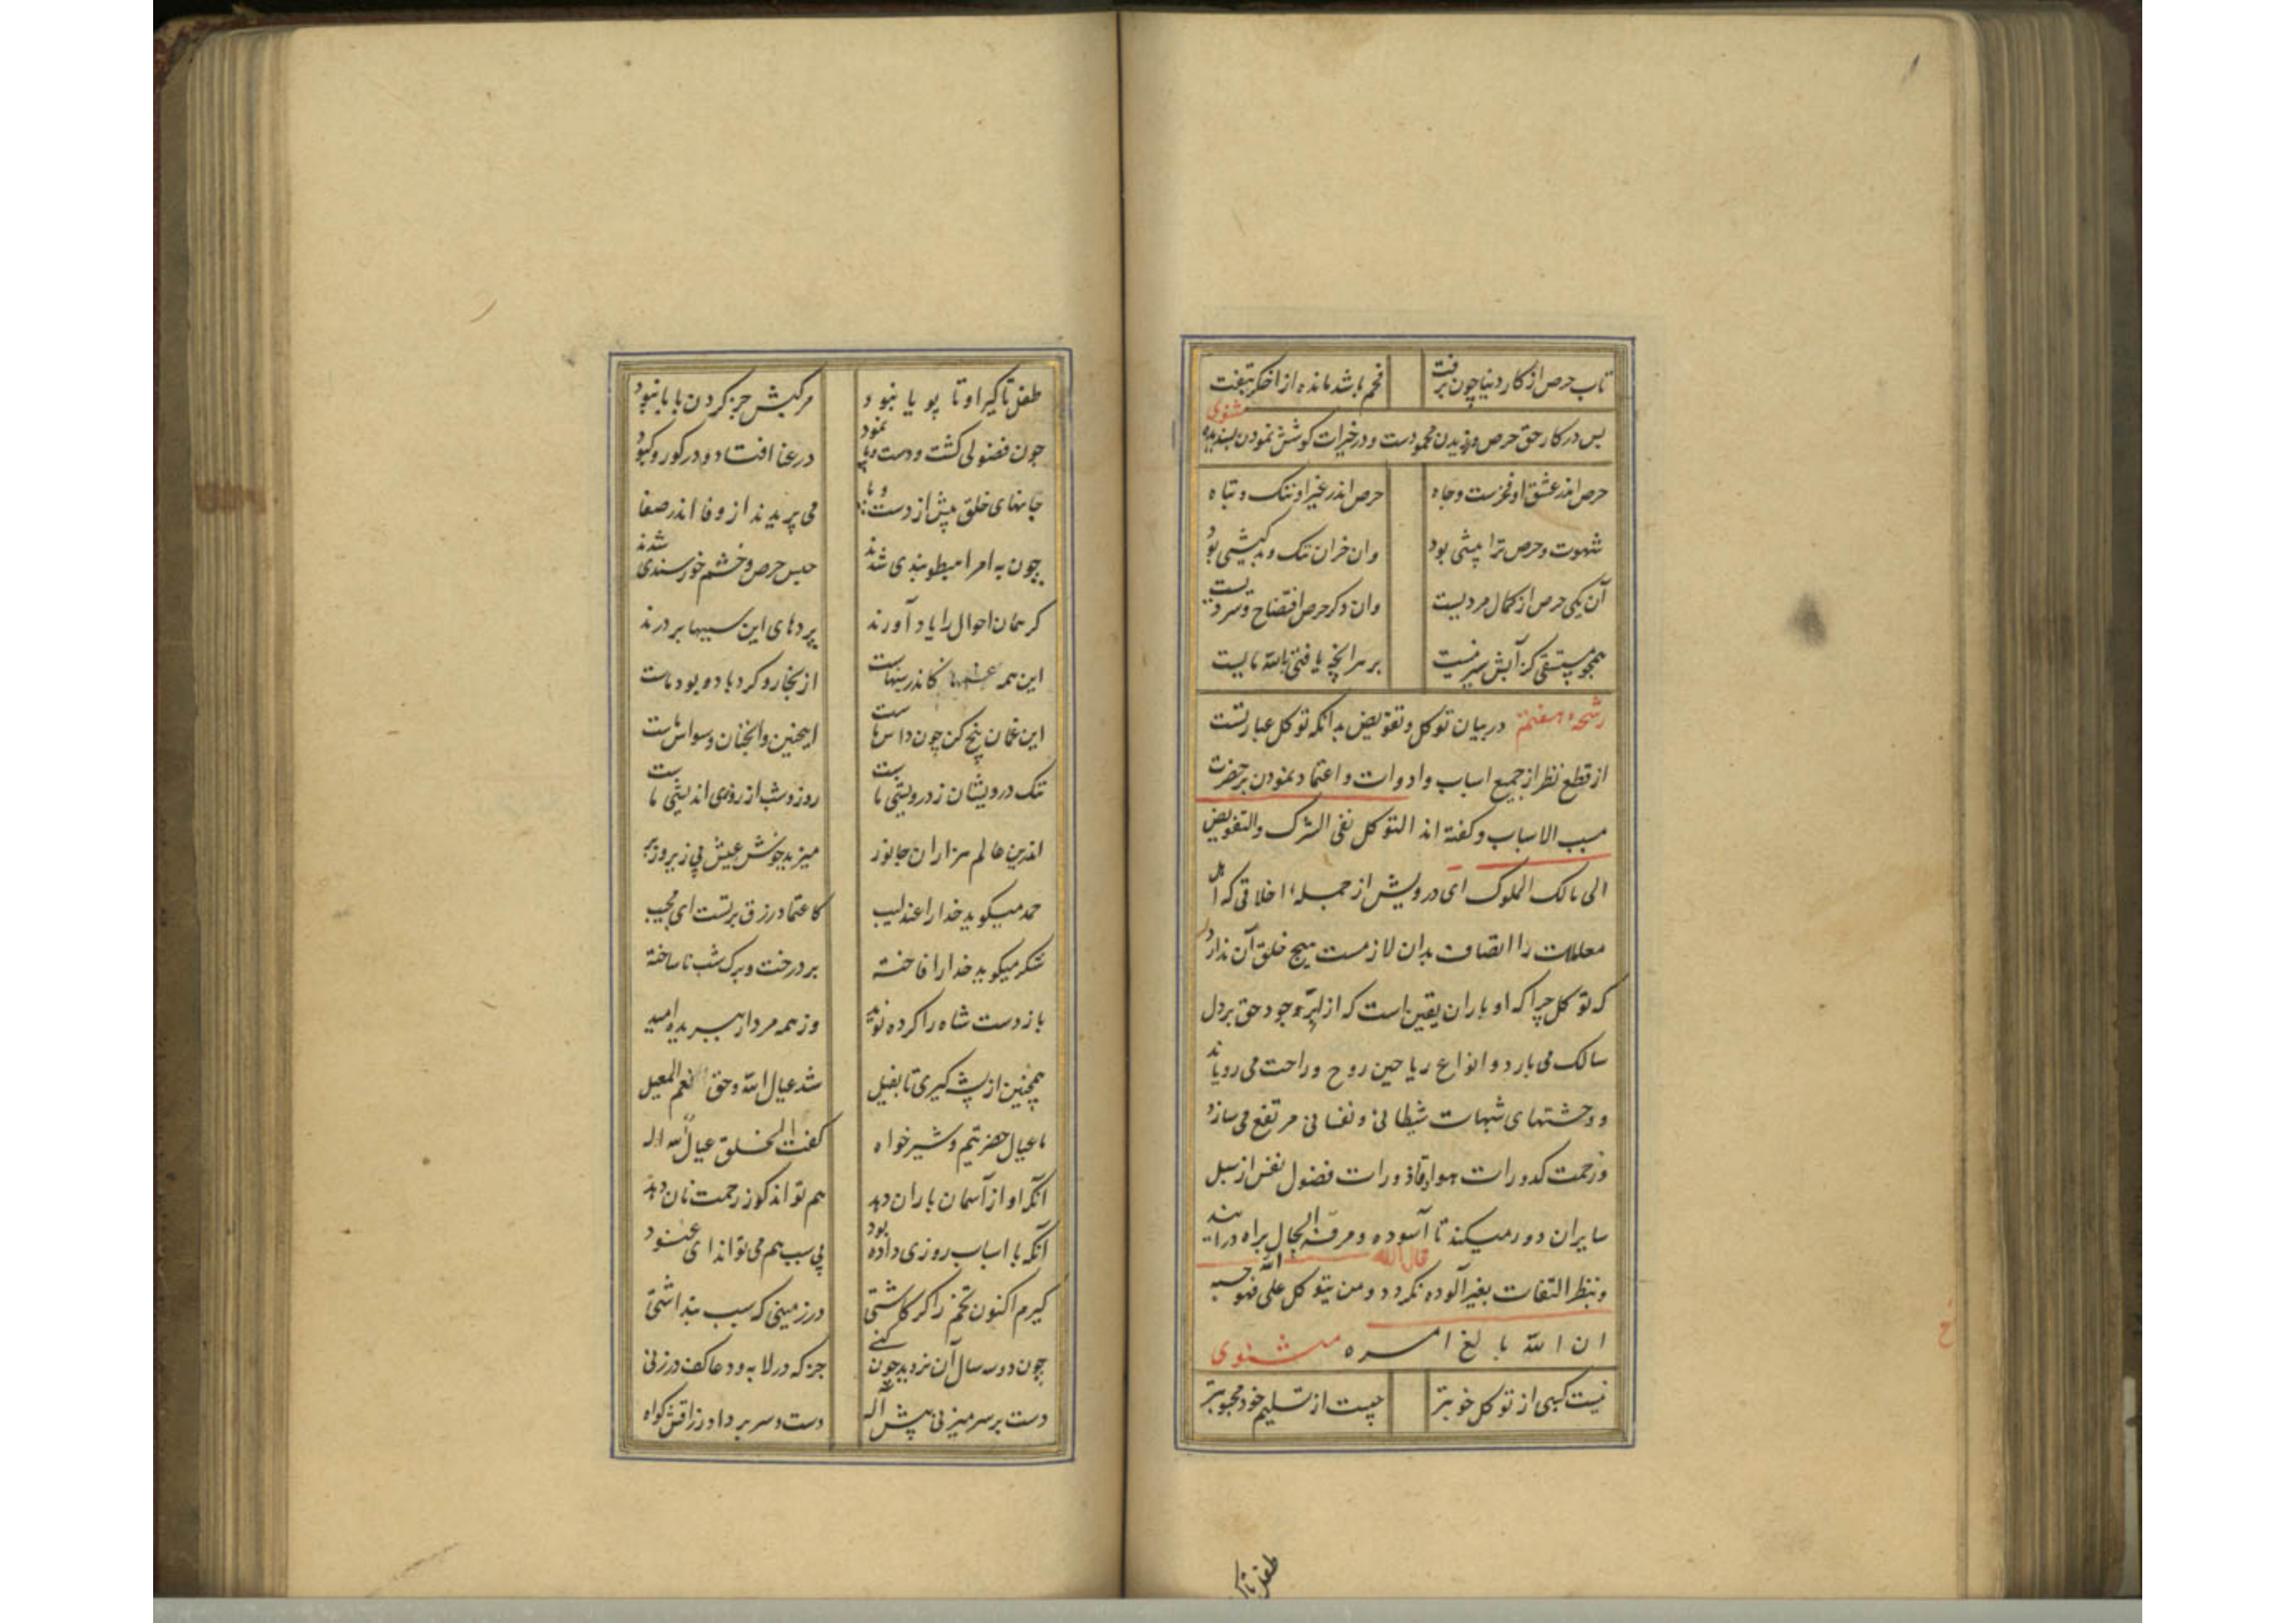 تاب حرص از کار دنیا چون برفت فحم باشد مانده از اخکر بتفت
مثنوی
پس در کار حق حرص ورزیدن محمودست و در خیرات کوشش نمودن پسندیده
حرص اندر عشق او فخرست و جاه حرص اندر غیر او ننک و تباه
شهوت و حرص نرا پیشی بود وان خران ننک و بدکیشی بود
آن یکی حرص از کمال مردیست وان دکر حرص افتضاح و سردیست
همچو مستسقی کز آبش سیر نیست بر هر آنچ یافتی بالله مایست
رشحه هفتم در بیان توکل و تفویض بدانکه توکل عبارتست
از قطع نظر از جمیع اسباب و ادوات و اعتماد نمودن بر حضرت
مسبب الاسباب و کفته اند التوکل نفی الشرک والتفویض
الی مالک الملوک ای درویش از جمله اخلاقی که اهل
معاملات را اتصاف بدان لازمست هیچ خلق آن ندارد
که توکل چرا که او باران یقین است که از ابر وجود حق بر دل
سالک می بارد و انواع ریاحین روح و راحت می رویاند
و وحشتهای شبهات شیطانی و نفسانی مرتفع می سازد
و زحمت کدورات هوا و قاذورات فضول نفس از سبیل
سایران دور میکند تا آسوده و مرفه الحال براه درآیند
قال الله
و بنظر التفات بغیر آلوده نکردد و من یتوکل علی الله فهو حسبه
ان الله بالغ امره مثنوی
نیست کسبی از توکل خوبتر چیست از تسلیم خود محبوبتر
طفل تا
طفل تا کیرا و تا پویا نبود مرکبش جز کردن بابا نبود
چون فضولی کشت و دست و پا نمود در عنا افتاد و در کور و کبود
جانهای خلق پیش از دست و پا می پریدند از وفا اندر صفا
چون به امر اهبطو بندی شدند حبس حرص و خشم و خورسندی شدند
کر همان احوال را یاد آورند پردهای این سببها بر درند
این همه غمها کاندر سینهاست از بخار و کرد باد و بود ماست
این غمان بیخ کن چون داس ماست اینچنین و آنچنان وسواس ماست
ننک درویشان ز درویشی ماست روز و شب از روزی اندیشی ماست
اندرین عالم هزاران جانور میزید خوش عیش بی زیر و زبر
حمد میکوید خدا را عندلیب کاعتماد رزق بر تست ای مجیب
شکر میکوید خدا را فاخته بر درخت و برک شب ناساخته
باز دست شاه را کرده نوید وز همه مردار ببریده امید
همچنین از پشه کیری تا بفیل شد عیال الله و حق نعم المعیل
ما عیال حضرتیم و شیرخواه کفت الخلق عیال للاله
آنکه او از آسمان باران دهد هم تواند کو ز رحمت نان دهد
آنکه با اسباب روزی داده بود بی سبب هم می تواند ای عنود
کیرم اکنون تخم را کر کاشتی در زمینی که سبب پنداشتی
چون دو سه سال آن نروید چون کنی جز که در لابه و دعا کف در زنی
دست بر سر میزنی پیش اله دست و سر بر داد رزاقش کواه